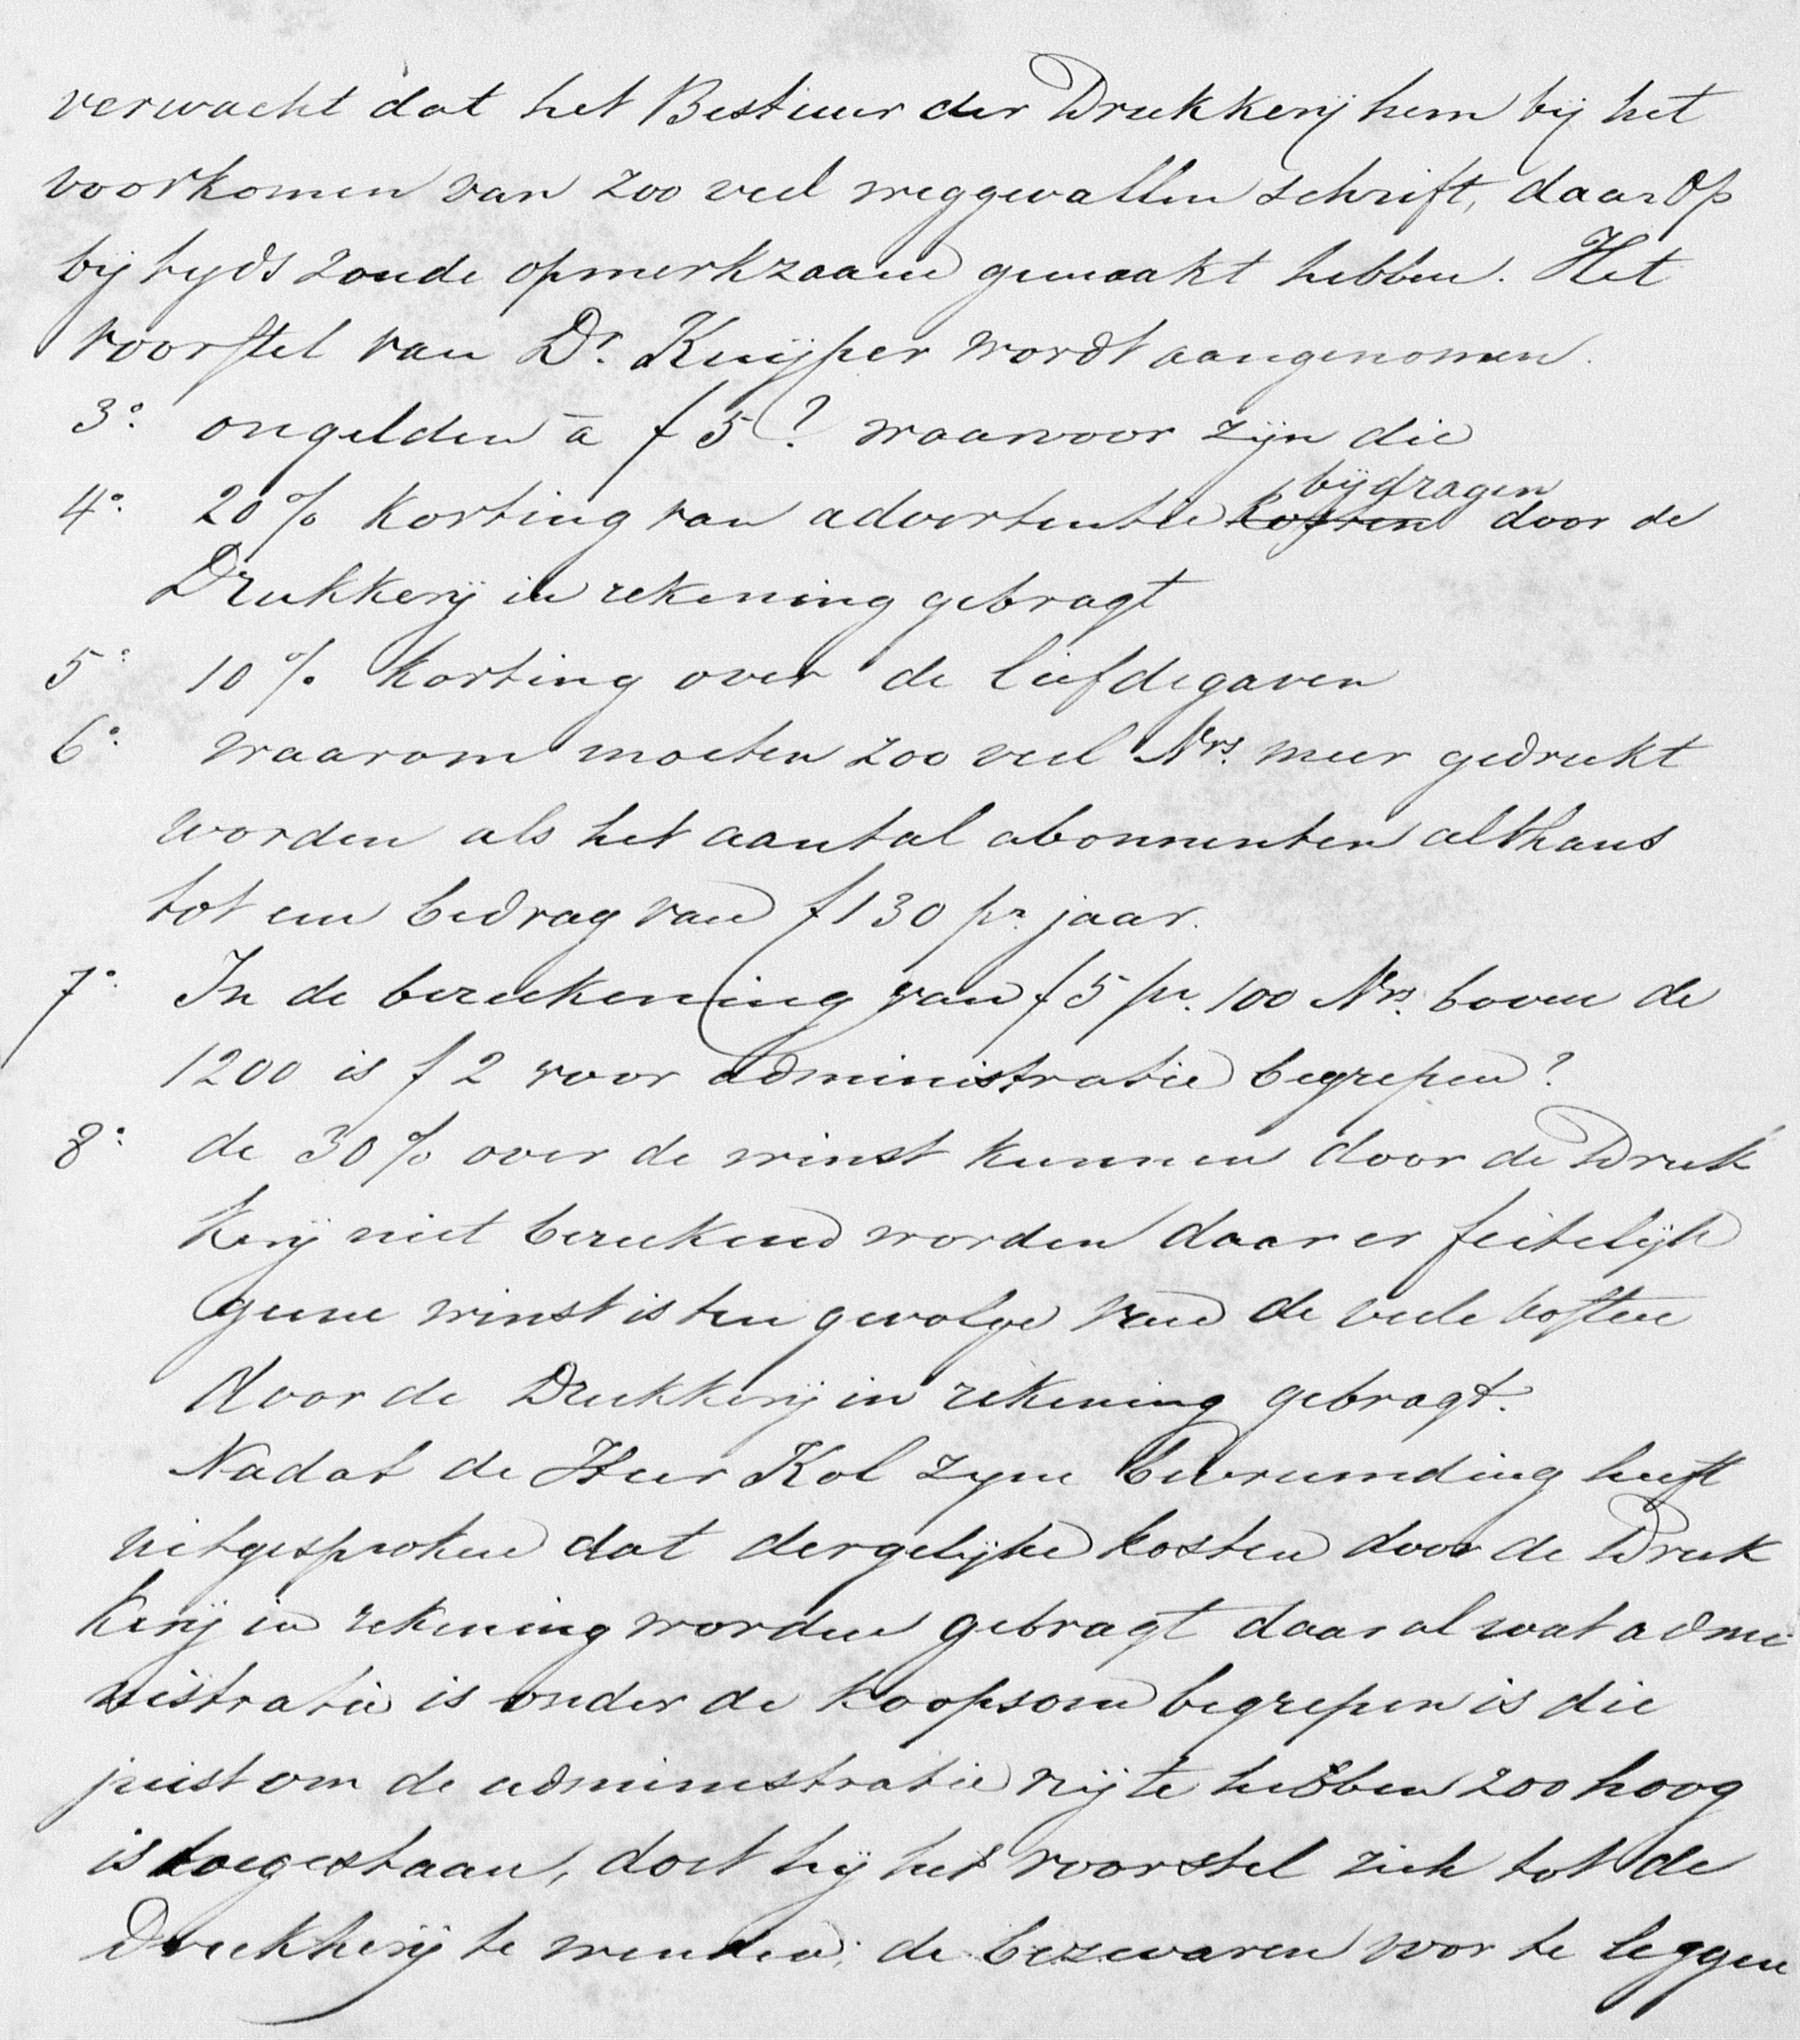 verwacht dat het Bestuur der Drukkerij hem bij het
voorkomen van zoo veel weggevallen schrift, daarop
bij tyds zoude opmerkzaam gemaakt hebben. Het
voorstel van Dr. Kuijper wordt aangenomen.
3o. ongelden à f 5? waarvoor zijn die
4o. 20% korting van advertentie ~~kosten~~ bijdragen door de
Drukkerij in rekening gebragt
5o. 10% korting over de liefdegaven
6o. waarom moeten zoo veel Nrs. meer gedrukt
worden als het aantal abonnenten althans
tot een bedrag van f 130 pr. jaar.
7o. In de berekening van f 5 pr. 100 Nrs. boven de
1200 is f 2 voor administratie begrepen?
8o. de 30% over de winst kunnen door de Druk
kerij niet berekend worden daar er feitelijk
geene winst is ten gevolge van de vele kosten
door de Drukkerij in rekening gebragt.
Nadat de Heer Kol zyne bevreemding heeft
uitgesproken dat dergelijke kosten door de Druk
kerij in rekening worden gebragt daar al wat admi
nistratie is onder de koopsom begrepen is die
juist om de administratie vrij te hebben zoo hoog
is toegestaan, doet hij het voorstel zich tot de
Drukkerij te wenden; de bezwaren voor te leggen